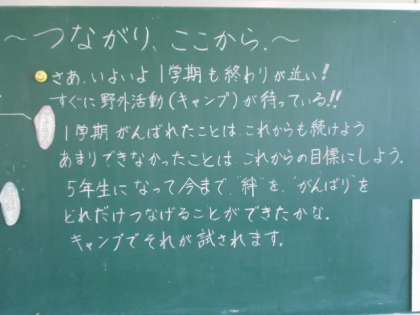 ～つながり、ここから.～
さあ、いよいよ1学期も終わりが近い!
すぐに野外活動(キャンプ)が待っている!!
1学期がんばれたことは、これからも続けよう
あまりできなかったことは、これからの目標にしよう.
5年生になって今まで“絆”を、“がんばり”を
どれだけつなげることができたかな.
キャンプでそれが試されます.